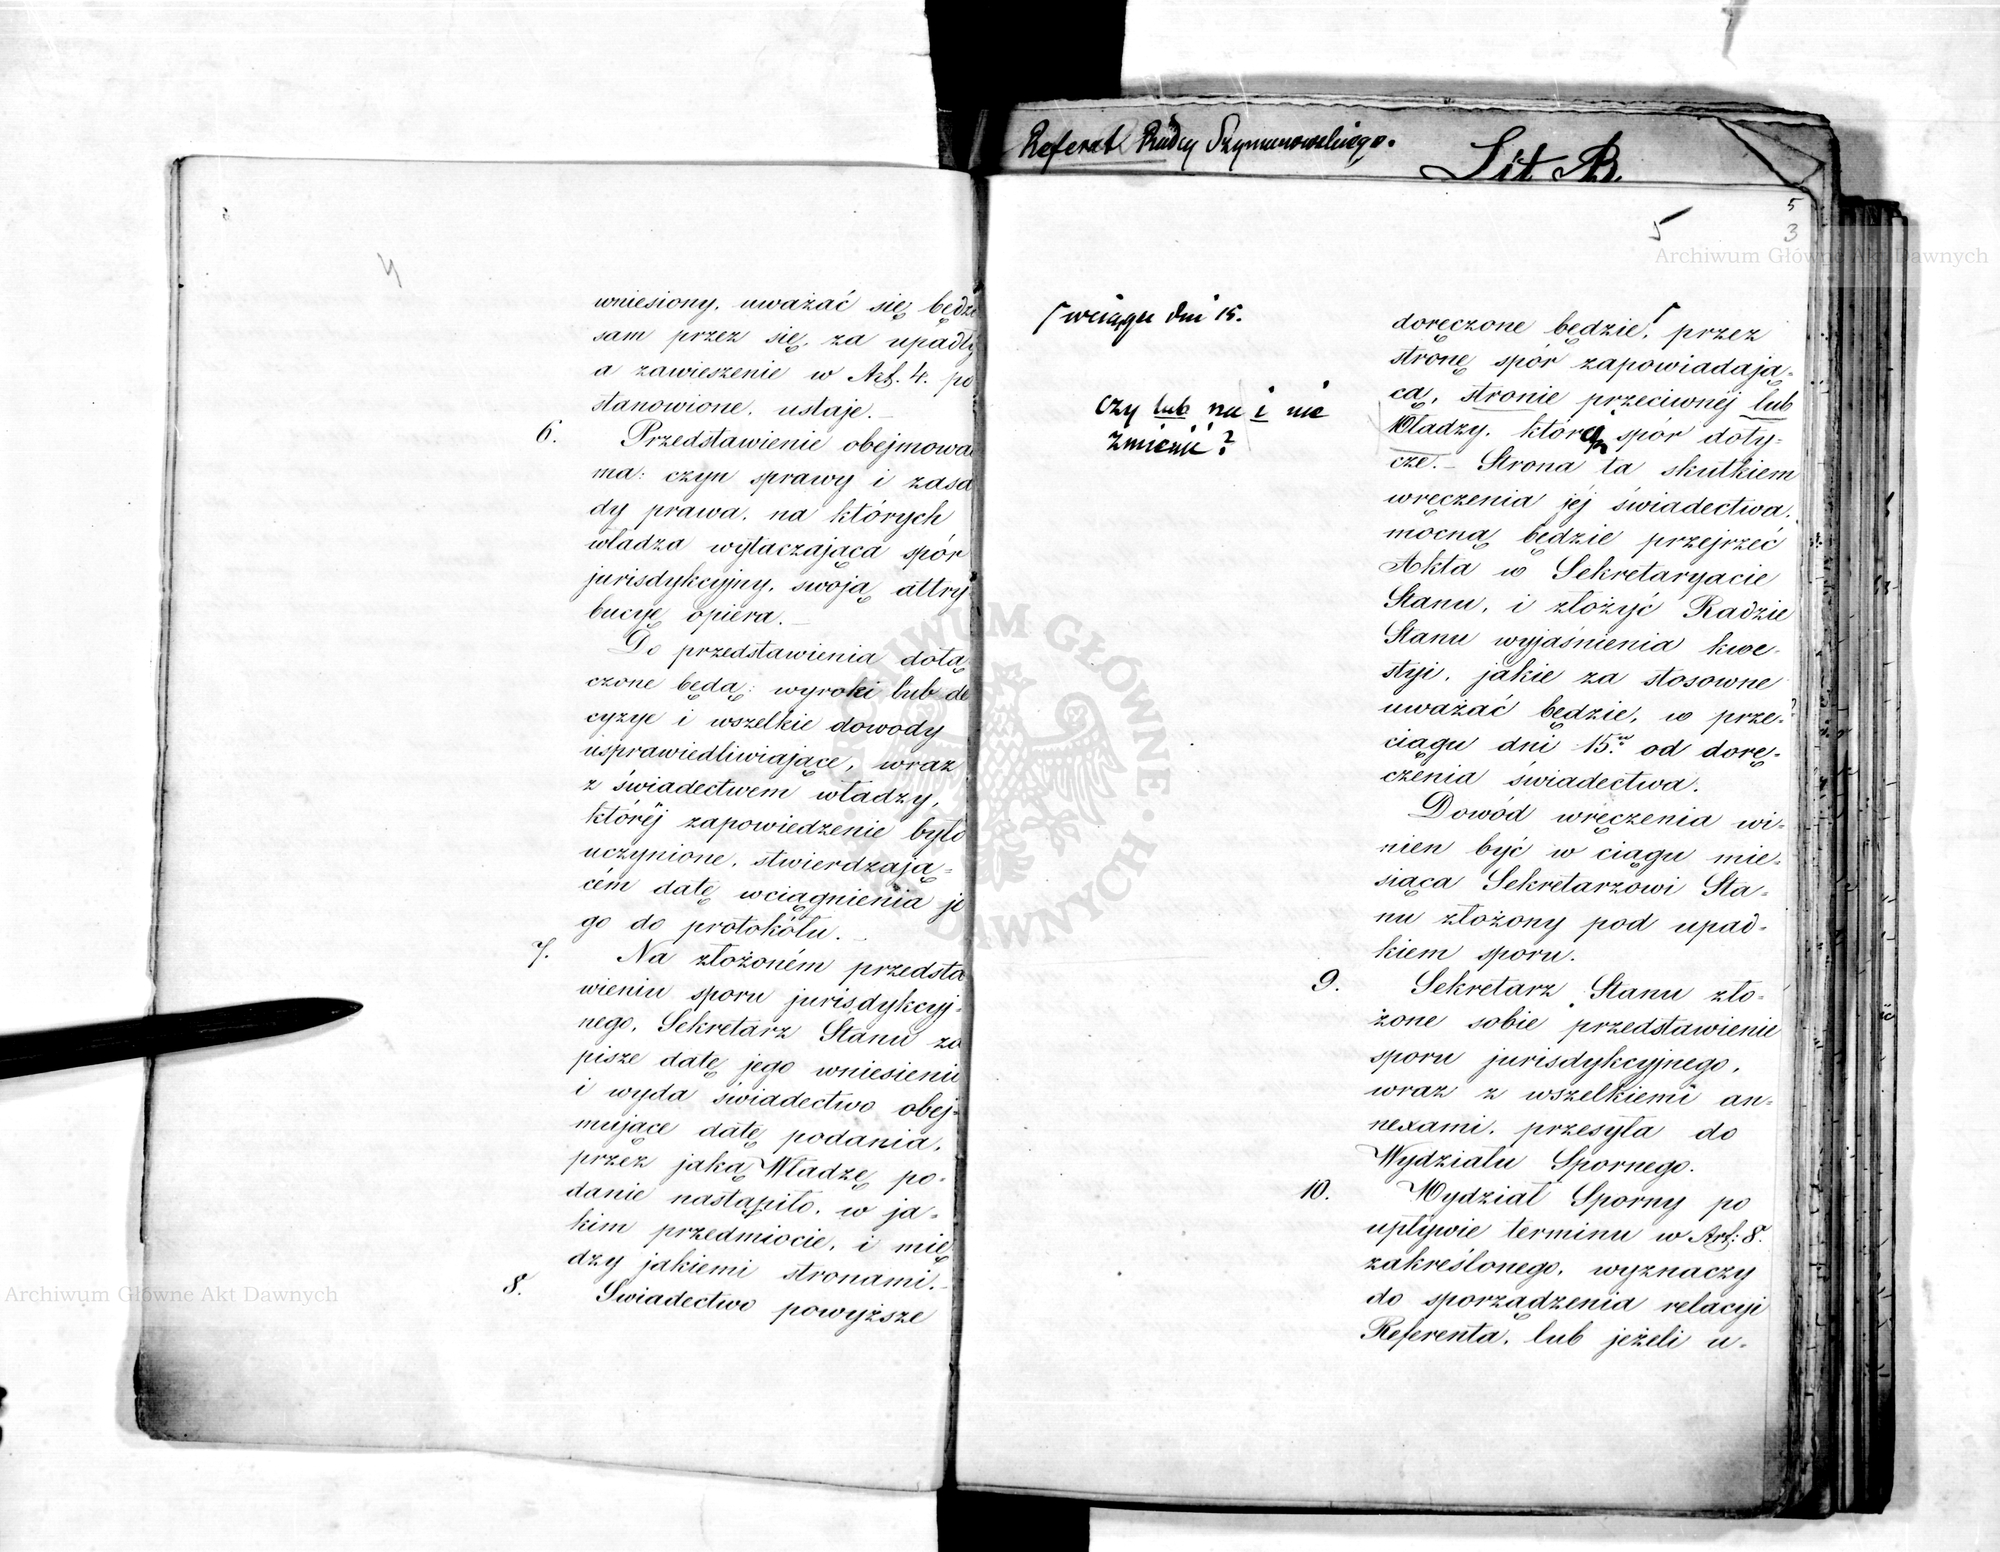 4
wniesiony, uważać się będzi
sam przez się, za upadły
a zawieszenie w Art. 4. po
stanowione, ustaje.—
6.
Przedstawienie obejmowa
ma: czyn sprawy i zasa
dy prawa, na których
władza wytaczająca spór
jurisdykcyjny, swoją attry
bucyę opiera.—
Do przedstawienia dołą
czone będą: wyroki lub de
cyzye i wszelkie dowody
usprawiedliwiające, wraz
z świadectwem władzy,
któréj zapowiedzenie było
uczynione, stwierdzają-
cém datę wciągnienia je
go do protokółu.—
7.
Na złożoném przedsta
wieniu sporu jurisdykcyj-
nego, Sekretarz Stanu za
pisze datę jego wniesienia
i wyda świadectwo obej-
mujące datę podania,
przez jaką Władzę po-
danie nastąpiło, w ja-
kim przedmiocie, i mię
dzy jakiemi stronami.—
8.
Swiadectwo powyższe
Referat Radcy Szymanowskiego.
Lit B.
5
5
3
Γ wciągu dni 15.
czy lub na i nie
zmienić?
doręczone będzie,Γ przez
stronę spór zapowiadają-
cą, stronie przeciwnéj lub
Władzy, którą spór doty-
cze.— Strona ta skutkiem
wręczenia jéj świadectwa,
mocną będzie przejrzeć
Akta w Sekretaryacie
Stanu, i złożyć Radzie
Stanu wyjaśnienia kwe-
styi, jakie za stosowne
uważać będzie, w prze-
ciągu dni 15.u od dorę-
czenia świadectwa.
Dowód wręczenia wi-
nien być w ciągu mie-
siąca Sekretarzowi Sta-
nu złożony pod upad-
kiem sporu.
9.
Sekretarz Stanu zło-
żone sobie przedstawienie
sporu jurisdykcyjnego,
wraz z wszelkiemi an-
nexami, przesyła do
Wydziału Spornego.
10.
Wydział Sporny po
upływie terminu w Art: 8.
zakreślonego, wyznaczy
do sporządzenia relacyi
Referenta, lub jeżeli u-
Archiwum Główne Akt Dawnych
Archiwum Główne Akt Dawnych
ARCHIWUM GŁÓWNE AKT DAWNYCH